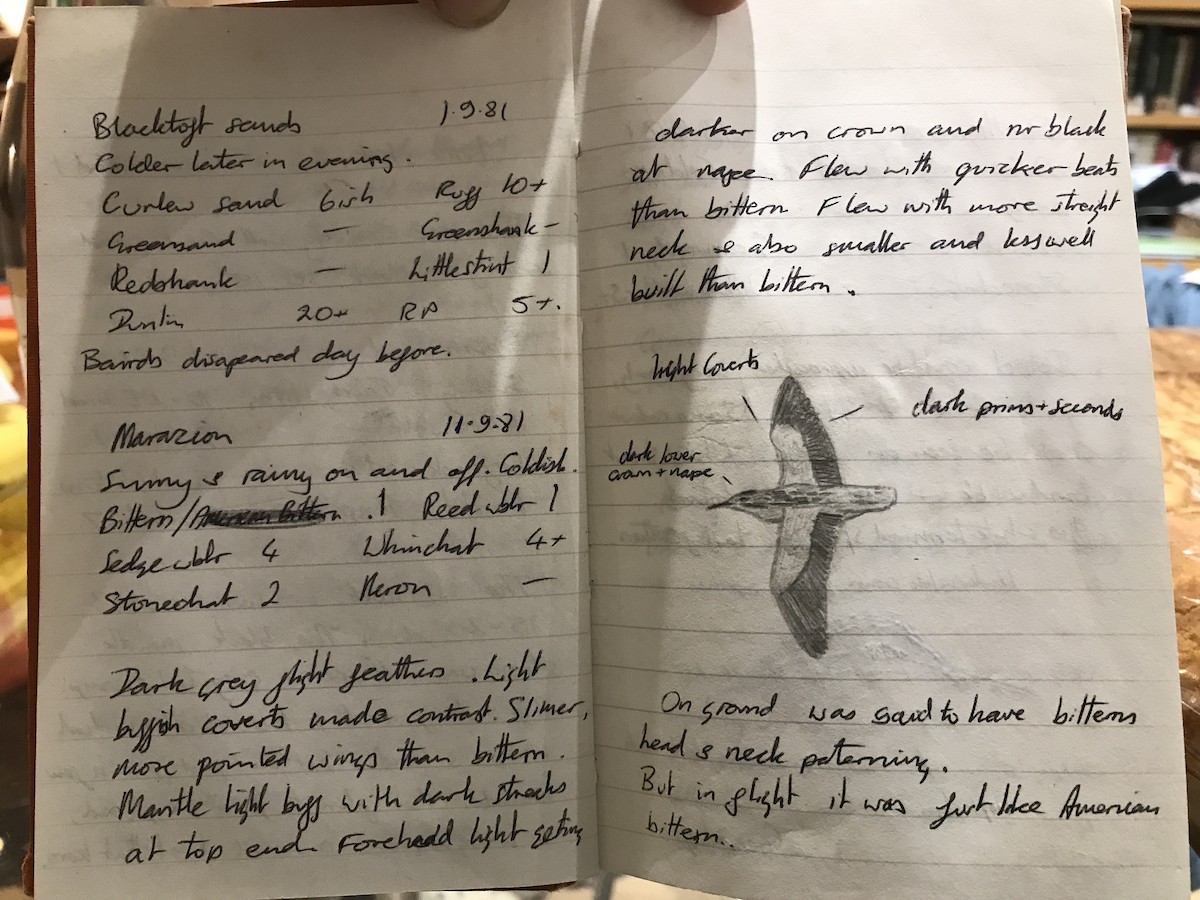 Blacktoft sands 1.9.81
Colder later in evening.
Curlew sand 6ish Ruff 10+
Greensand — Greenshank -
Redshank — Little stint 1
Dunlin 20+ RP 5+.
Bairds disapeared day before.
Marazion 11.9.81
Sunny & rainy on and off. Coldish.
Bittern/American Bittern .1 Reed wblr 1
Sedge wblr 4 Whinchat 4+
Stonechat 2 Heron —
Dark grey flight feathers. Light
buffish coverts made contrast. Slimer,
more pointed wings than bittern.
Mantle light buff with dark streaks
at top end. Forehead light geting
darker on crown and nr black
at nape. Flew with quicker beats
than bittern Flew with more streight
neck & also smaller and less well
built than bittern.
light coverts
dark prims + seconds
dark lower
crown + nape
On ground was said to have bitterns
head & neck paterning.
But in flight it was just like American
bittern..